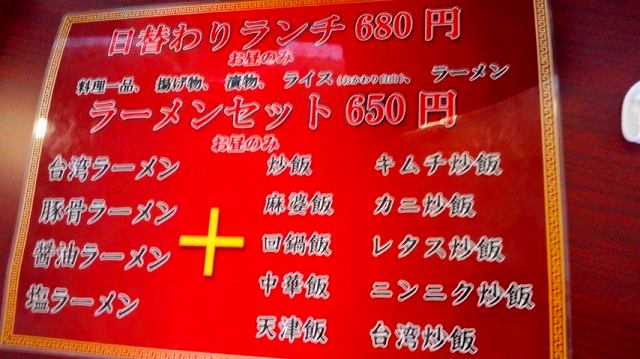 日替わりランチ 680 円
お昼のみ
料理一品、 揚げ物、 漬物、 ライス(おかわり自由)、 ラーメン
ラーメンセット 650 円
お昼のみ
台湾ラーメン
豚骨ラーメン
醤油ラーメン
塩ラーメン
+
炒飯
麻婆飯
回鍋飯
中華飯
天津飯
キムチ炒飯
カニ炒飯
レタス炒飯
ニンニク炒飯
台湾炒飯